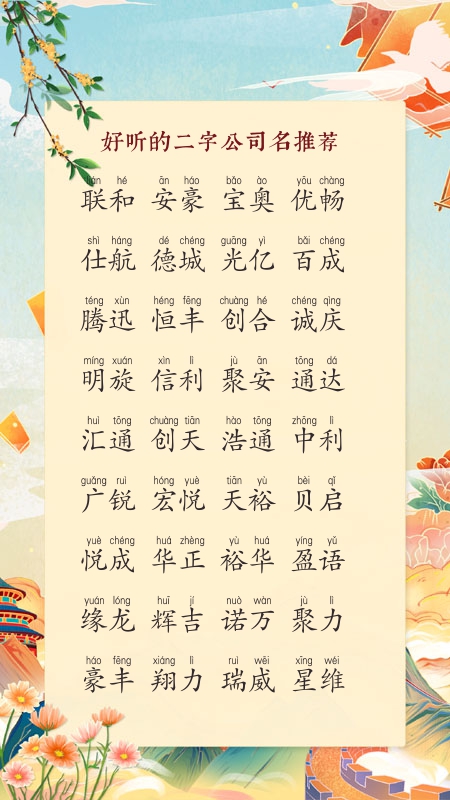 好听的二字公司名推荐
lián hé ān háo bǎo ào yōu chàng
联和 安豪 宝奥 优畅
shì háng dé chéng guāng yì bǎi chéng
仕航 德城 光亿 百成
téng xùn héng fēng chuàng hé chéng qìng
腾迅 恒丰 创合 诚庆
míng xuán xìn lì jù ān tōng dá
明旋 信利 聚安 通达
huì tōng chuàng tiān hào tōng zhōng lì
汇通 创天 浩通 中利
guǎng ruì hóng yuè tiān yù bèi qǐ
广锐 宏悦 天裕 贝启
yuè chéng huá zhèng yù huá yíng yǔ
悦成 华正 裕华 盈语
yuán lóng huī jí nuò wàn jù lì
缘龙 辉吉 诺万 聚力
háo fēng xiáng lì ruì wēi xīng wéi
豪丰 翔力 瑞威 星维